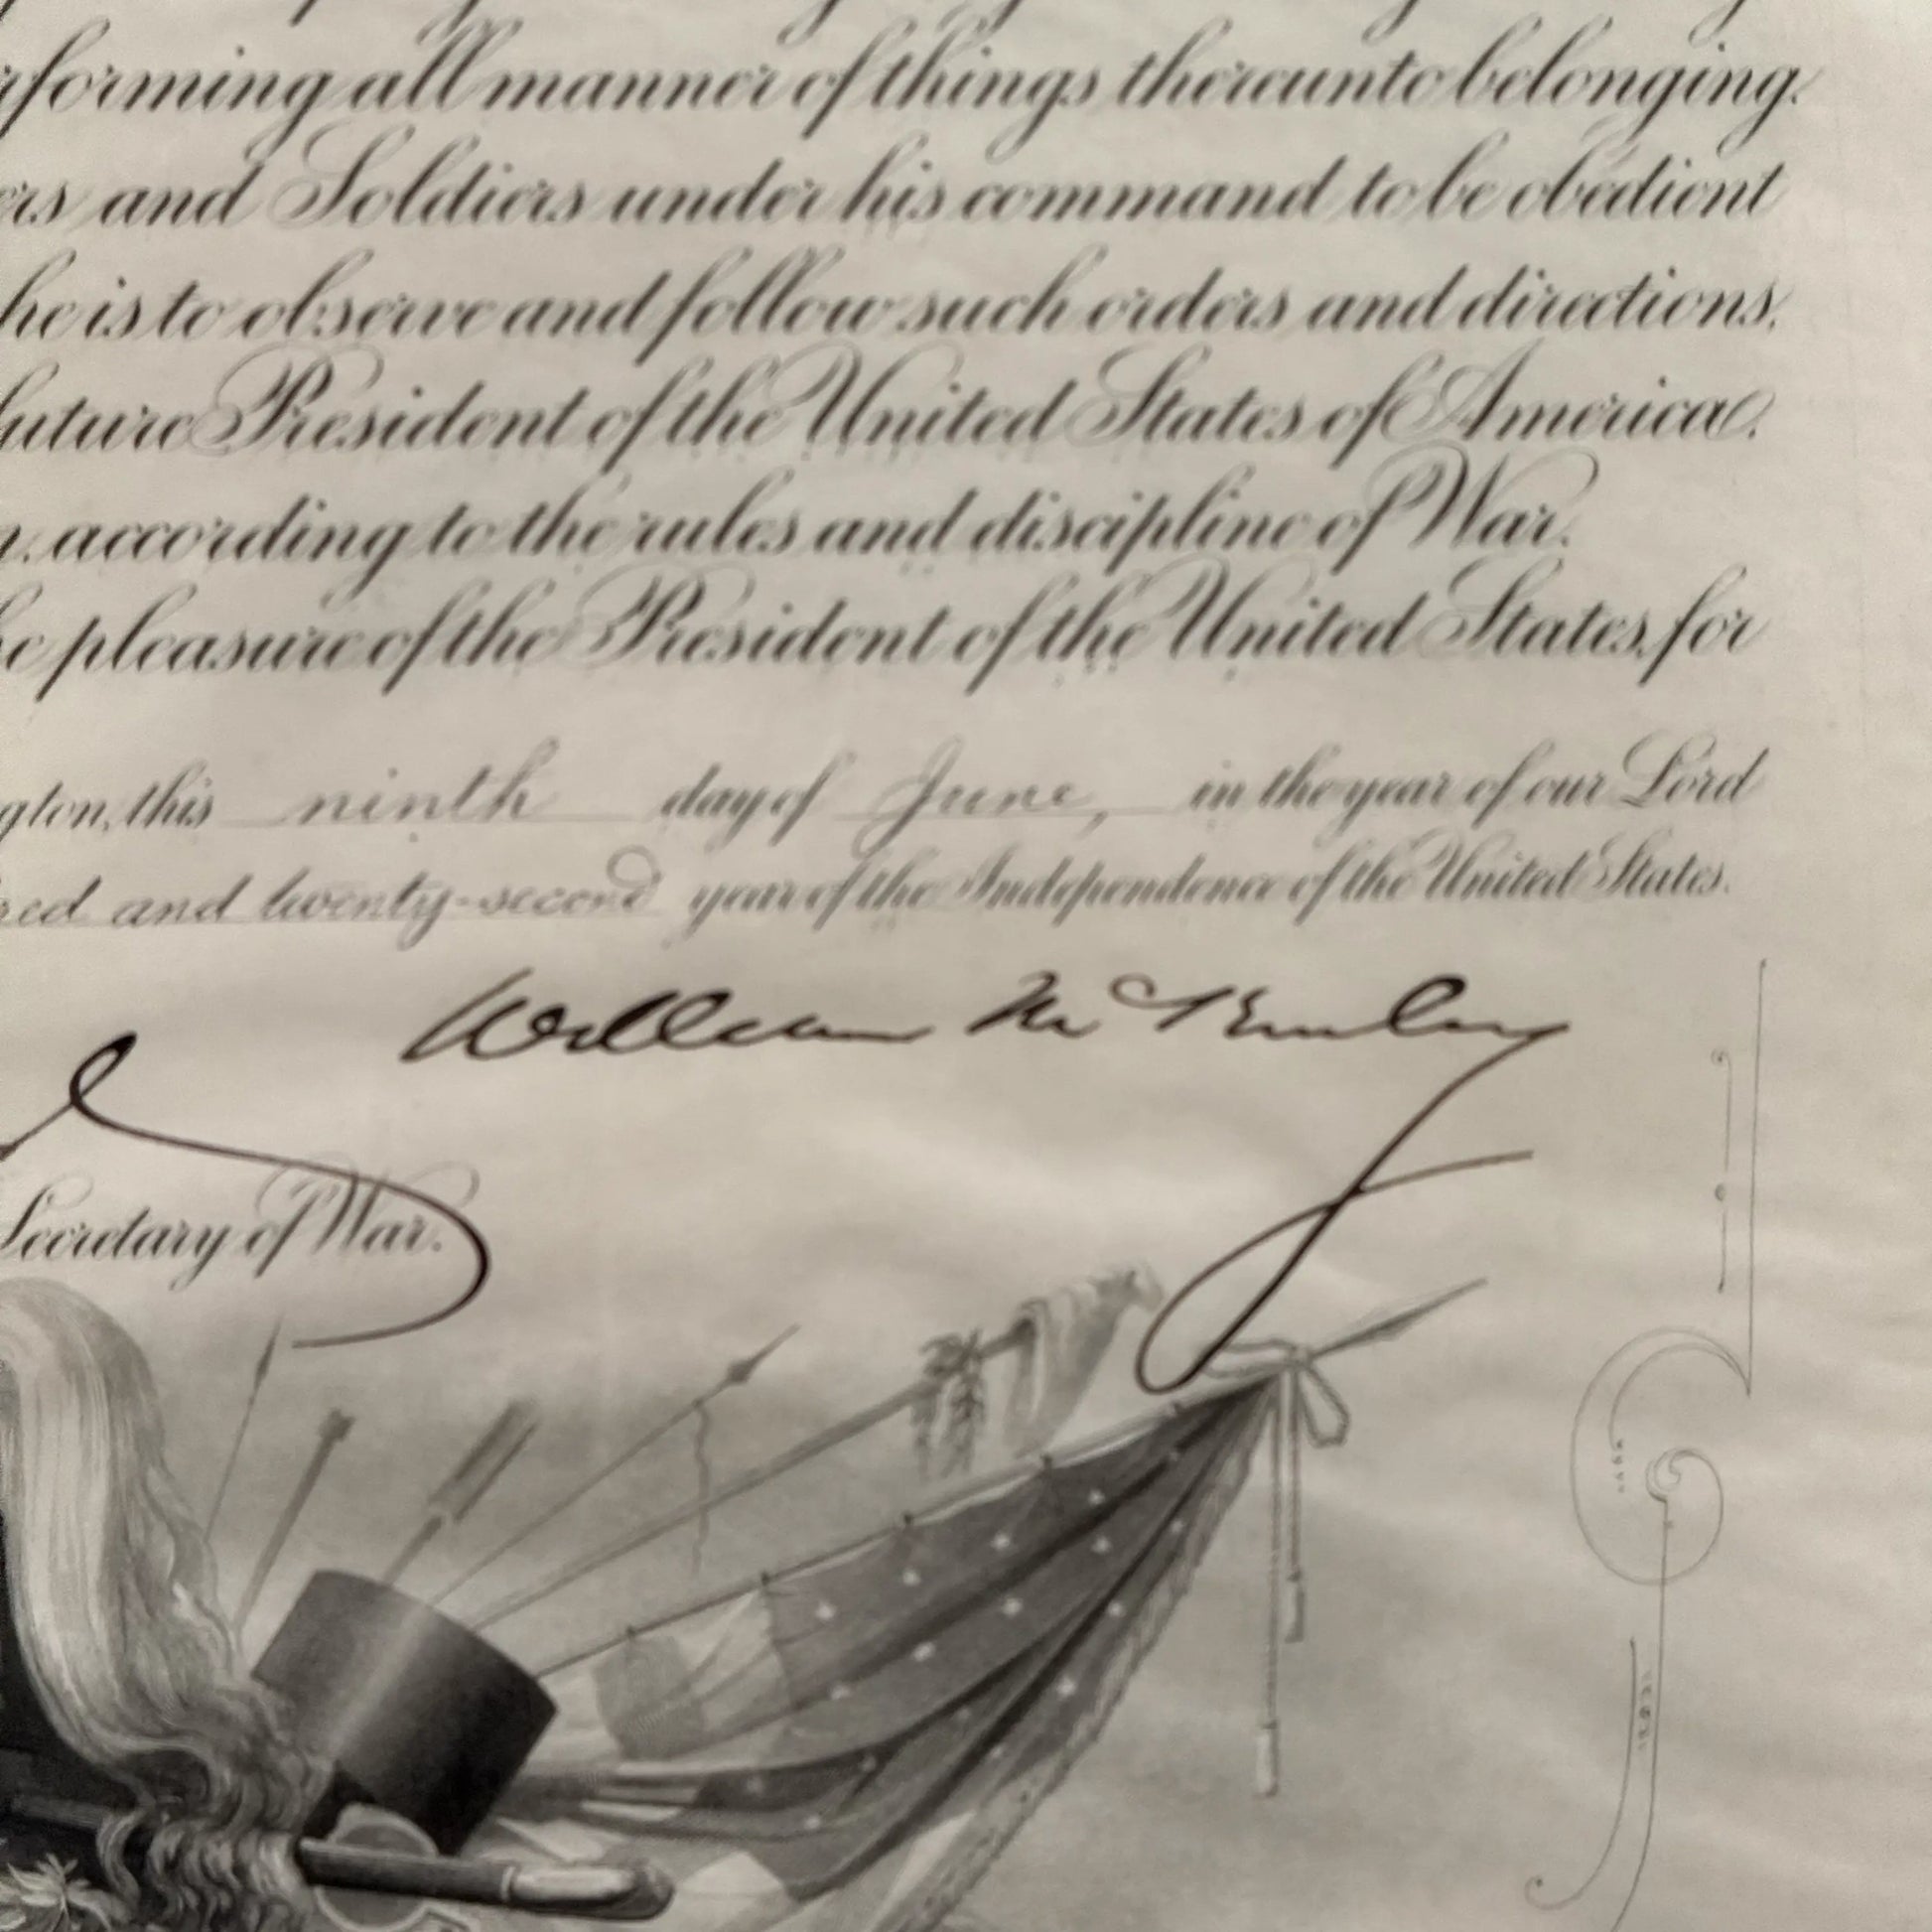 forming all manner of things thereunto belonging.
ers and Soldiers under his command to be obedient
he is to observe and follow such orders and directions,
future President of the United States of America.
according to the rules and discipline of War.
pleasure of the President of the United States, for
gton, this ninth day of June, in the year of our Lord
red and twenty-second year of the Independence of the United States.
William McKinley
Secretary of War.